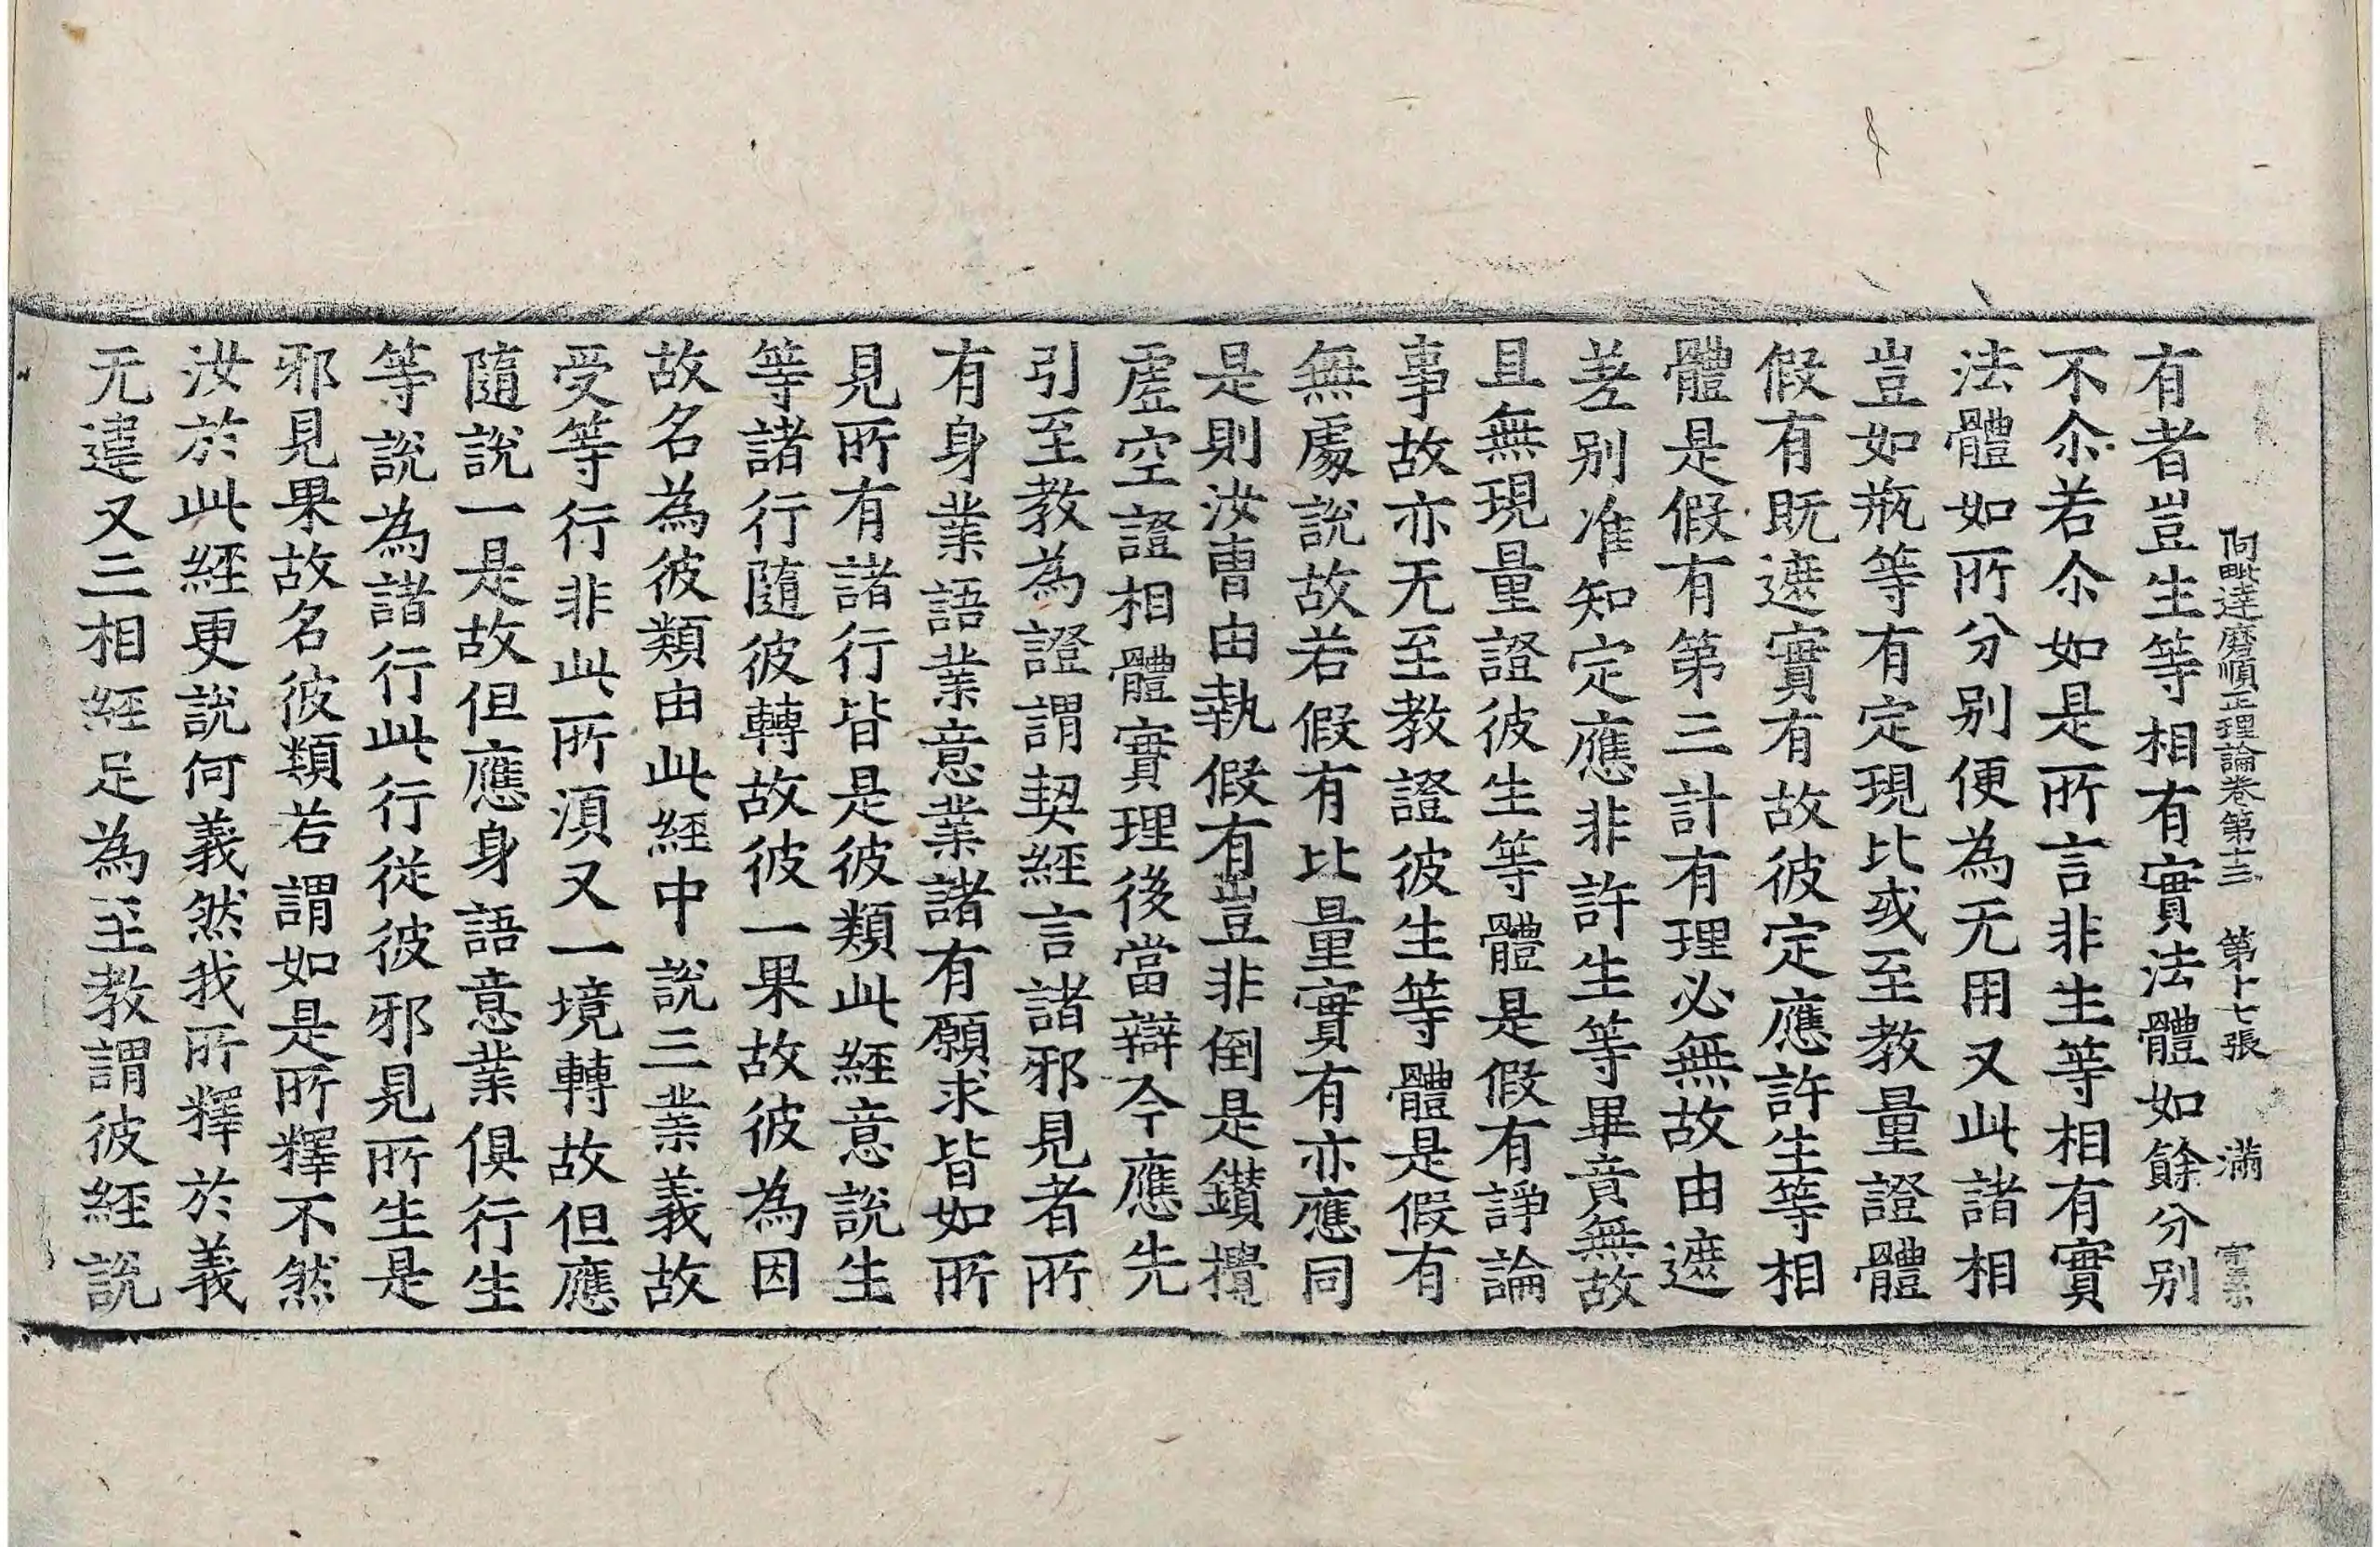 阿毗達磨順正理論卷第十三 第十七張 滿
有者豈生等相有實法體如餘分別
不尒若尒如是所言非生等相有實
法體如所分別便為无用又此諸相
豈如瓶等有定現比或至教量證體
假有既遮實有故彼定應許生等相
體是假有第三計有理必無故由遮
差別准知定應非許生等畢竟無故
且無現量證彼生等體是假有諍論
事故亦无至教證彼生等體是假有
無處說故若假有比量實有亦應同
是則汝曹由執假有豈非倒是鑚攪
虛空證相體實理後當辯今應先
引至教為證謂契經言諸邪見者所
有身業語業意業諸有願求皆如所
見所有諸行皆是彼類此經意說生
等諸行隨彼轉故彼一果故彼為因
故名為彼類由此經中說三業義故
受等行非此所須又一境轉故但應
隨說一是故但應身語意業俱行生
等說為諸行此行從彼邪見所生是
邪見果故名彼類若謂如是所釋不然
汝於此經更說何義然我所釋於義
无違又三相經足為至教謂彼經說